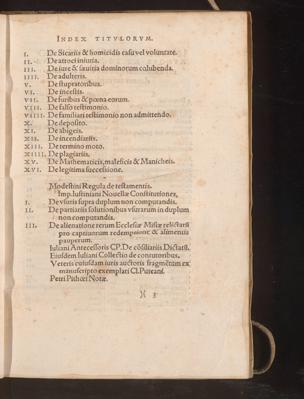 INDEX TITVLORVM.
I. De Sicariis & homicidis casu vel voluntate.
II. De atroci iniuria.
III. De iure & sæuitia dominorum cohibenda.
IIII. De adulteris.
V. De stupratoribus.
VI. De incestis.
VII. De furibus & pœna eorum.
VIII. De falso testimonio.
VIIII. De familiari testimonio non admittendo.
X. De deposito.
XI. De abigeis.
XII. De incendiariis.
XIII. De termino moto.
XIIII. De plagiariis.
XV. De Mathematicis, maleficis & Manicheis.
XVI. De legitima successione.
Modestini Regula de testamentis.
Imp. Iustiniani Nouellæ Constitutiones,
I. De vsuris supra duplum non computandis.
II. De partiariis solutionibus vsurarum in duplum
non computandis.
III. De alienatione rerum Ecclesiæ Misiæ relictarū
pro captiuorum redemptione & alimentis
pauperum.
Iuliani Antecessoris CP. De cōsiliariis Dictatū.
Eiusdem Iuliani Collectio de contutoribus.
Veteris cuiusdam iuris auctoris fragmētum ex
manuscripto exemplari Cl. Puteani.
Petri Pithœi Notæ.